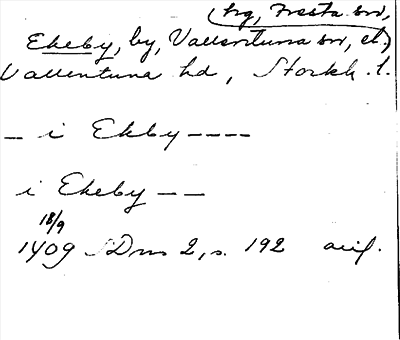 (trg, Fresta sn,
Ekeby, by, Vallentuna sn, el.)
Vallentuna hd, Stockh. l.
— i Ekby ----
i Ekeby — —
18/9
1409 SDns 2, s. 192 avif.